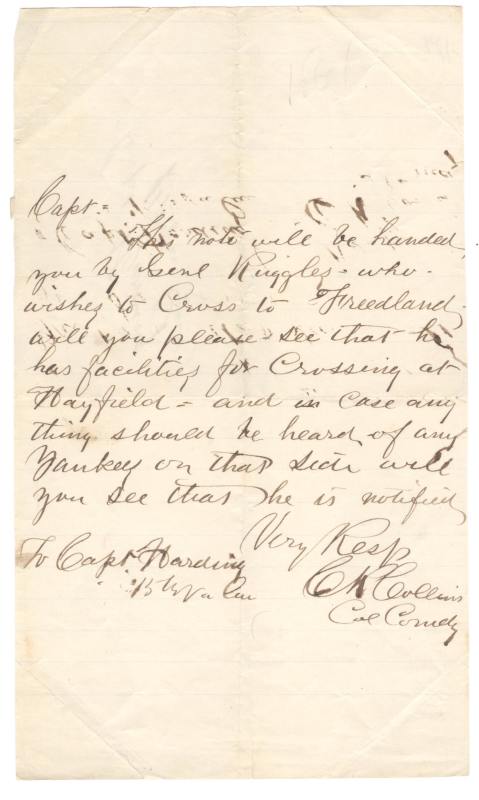 Capt=
This note will be handed
you by Genl Ruggles - who -
wishes to Cross to Freedland -
will you please see that he
has facilities for Crossing at
Hayfield = and in Case any
thing should be heard of any
Yankey on that side will
you see that he is notified
Very Resp
To Capt Harding
C R Collins
15th Va Cav
Col Comdg